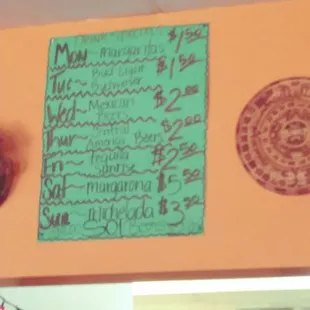 Drink Specials
Mon~ Margaritas $1.50
Tue~ Bud Light
Budweiser $1.50
Wed~ Mexican
Beers $2.00
Thur~ Central
America Beers $2.00
Fri~ Tequila
Sunrise $2.50
Sat~ margarona $5.50
Sun Michelada $3.50
SOL